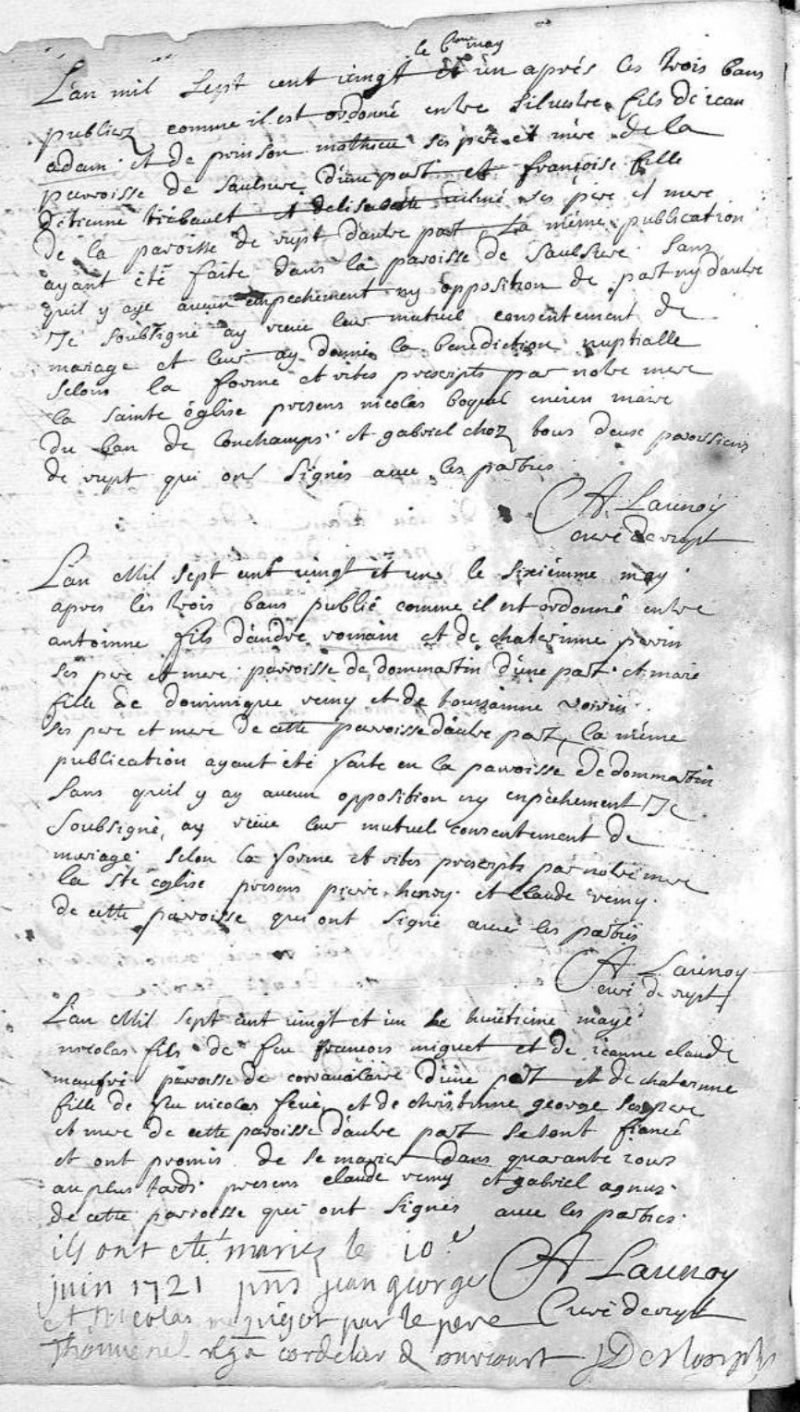 le 6me may
L'an mil sept cent vingt et un aprés les trois bans
publiez comme il est ordonné entre Silvestre fils de jean
adam et de prinson mathieu ses pere et mere de la
parroisse de Saulsure d'une part et françoise fille
d'etienne trébault et delisabette ses père et mere
de la paroisse de rupt d'autre part, La même publication
ayant été faite dans la paroisse de Saulsure sans
quil y aye aucun enpechement ny opposition de part ny d'autre
Je soubsigné ay reeue leur mutuel consentement de
mariage et leur ay donné la benediction nuptialle
selons la forme et rites prescripts par nostre mere
la sainte église presens nicolas boquel encien maire
du ban de Lonchamps et gabriel choz tous deux paroissiens
de rupt qui ont signés avec les parties
A Launoy
curé de rupt
L'an Mil sept cent vingt et une le sixiemme may
apres les trois bans publié comme il est ordonné entre
antoinne fils d'andre romain et de chaterinne perrin
ses pere et mere parroisse de dommartin d'une part et marie
fille de dominique remy et de toussainne voirin
ses pere et mere de cette parroisse d'autre part, la même
publication ayant été faite en la paroisse de dommartin
sans quil y ay aucun opposition ny enpêchement Je
soubsigné, ay reeue leur mutuel consentement de
mariage selon la forme et rites prescripts par notre mere
la Ste église presens pierre henry et Claude remy
de cette parroisse qui ont signé avec les parties
A Launoy
curé de rupt
L'an Mil sept cent vingt et un le huitieme maye
nicolas fils de feu françois miguet et de jeanne claude
maufré paroisse de d'une part et de chaterinne
fille de feu nicolas ferié et de christinne george ses pere
et mere de cette paroisse d'autre part se sont fiancé
et ont promis de se marier dans quarante jours
au plus tard. presens claude remy et gabriel agnus
de cette parroisse qui ont signés avec les parties
ils ont eté mariez le 10e
juin 1721 pnns jean george A Launoy
et Nicolas par le pere Curé de rupt
Thouvenel cordelier